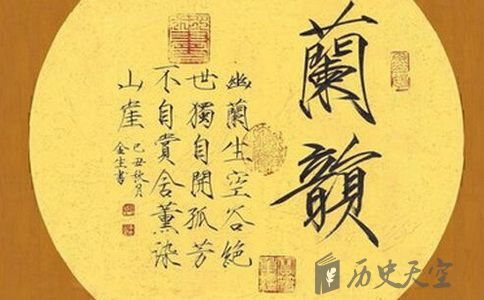 蘭韻
幽蘭生空谷絕
世獨自開孤芳
不自賞含薰染
山崖
己丑秋月
金生書
历史天空